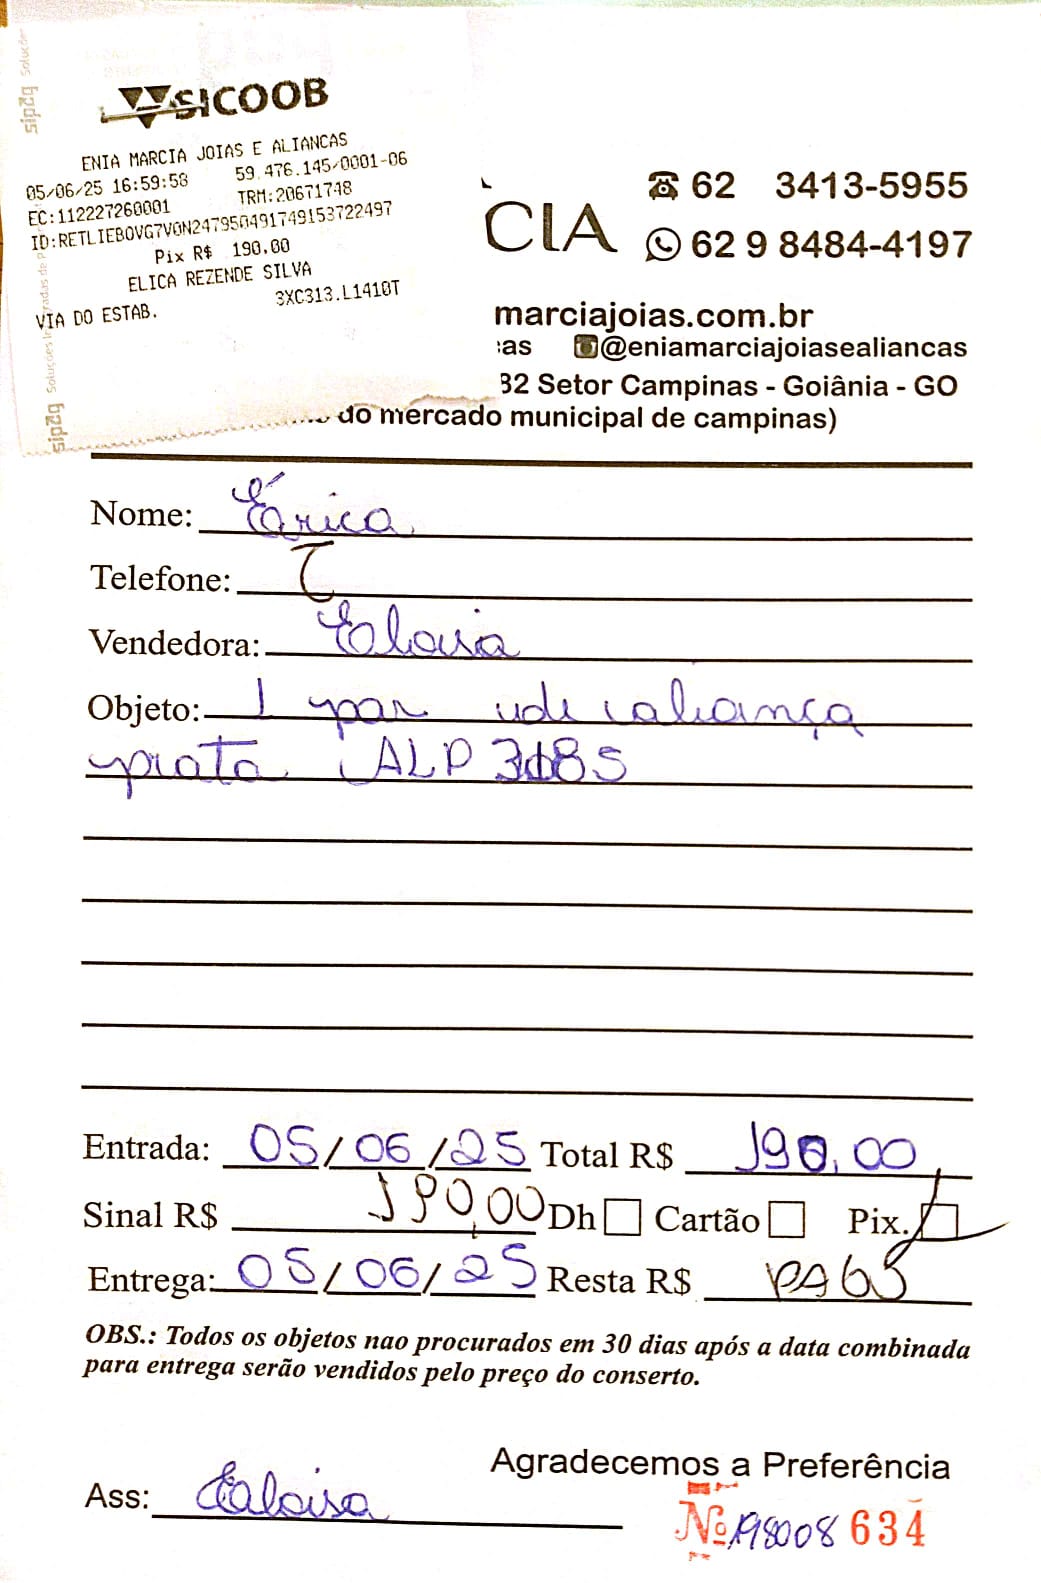 SICOOB
ENIA MARCIA JOIAS E ALIANCAS
05/06/25 16:59:58 59.476.145/0001-06
EC:112227260001 TRM:20671748
ID:RETLIEBOVG7V0N247950491749153722497
Pix R$ 190.00
ELICA REZENDE SILVA
VIA DO ESTAB. 3XC313.L1410T
CIA
62 3413-5955
62 9 8484-4197
marciajoias.com.br
as @eniamarciajoiasealiancas
32 Setor Campinas - Goiânia - GO
do mercado municipal de campinas)
Nome: Érica
Telefone:
Vendedora: Eloisa
Objeto: 1 par de aliança
prata ALP 3185
Entrada: 05/06/25 Total R$ 190,00
Sinal R$ 190,00 Dh Cartão Pix.
Entrega: 05/06/25 Resta R$ PAGO
OBS.: Todos os objetos nao procurados em 30 dias após a data combinada
para entrega serão vendidos pelo preço do conserto.
Agradecemos a Preferência
Ass: Eloisa
Nº 198008 634